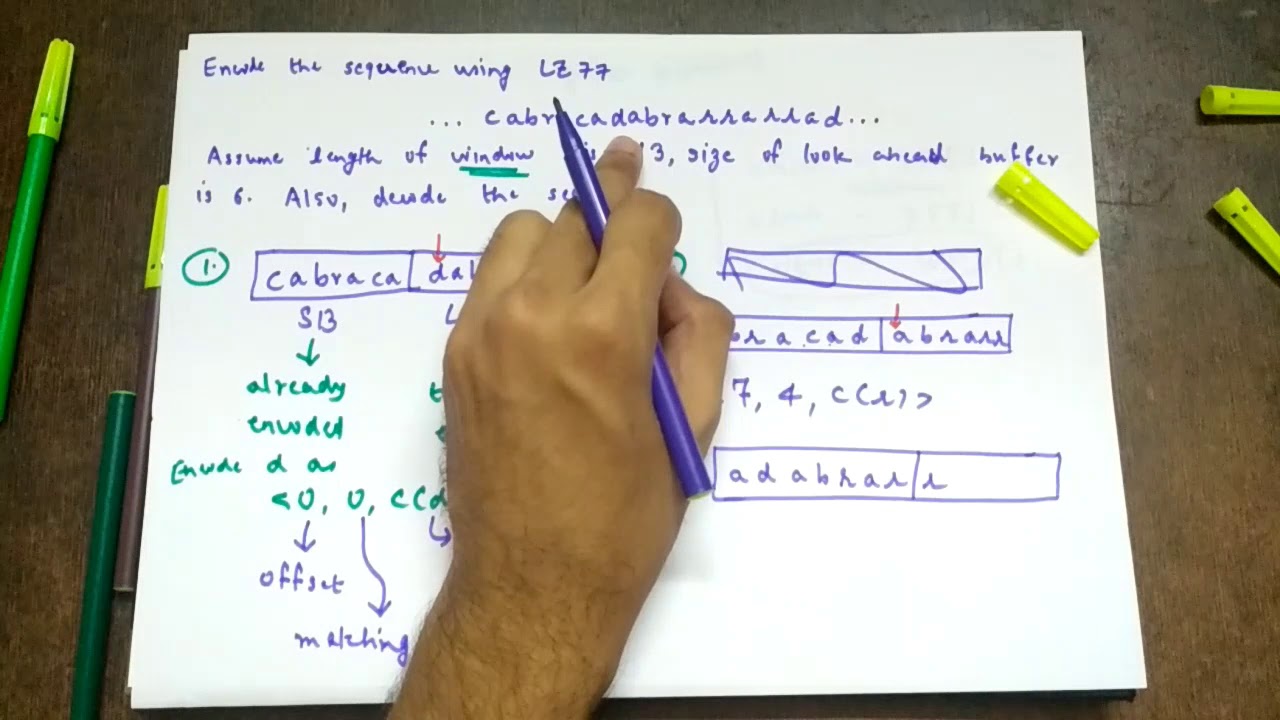 Encode the sequence using LZ77
... cabr cadabrarrarrad...
Assume length of window is 13, size of look ahead buffer
is 6. Also, decode the se
1.
cabraca dab
SB
already
encoded
Encode d as
<0, 0, C(d
offset
matching
bracad abrarr
7, 4, C(r)>
adabrar r